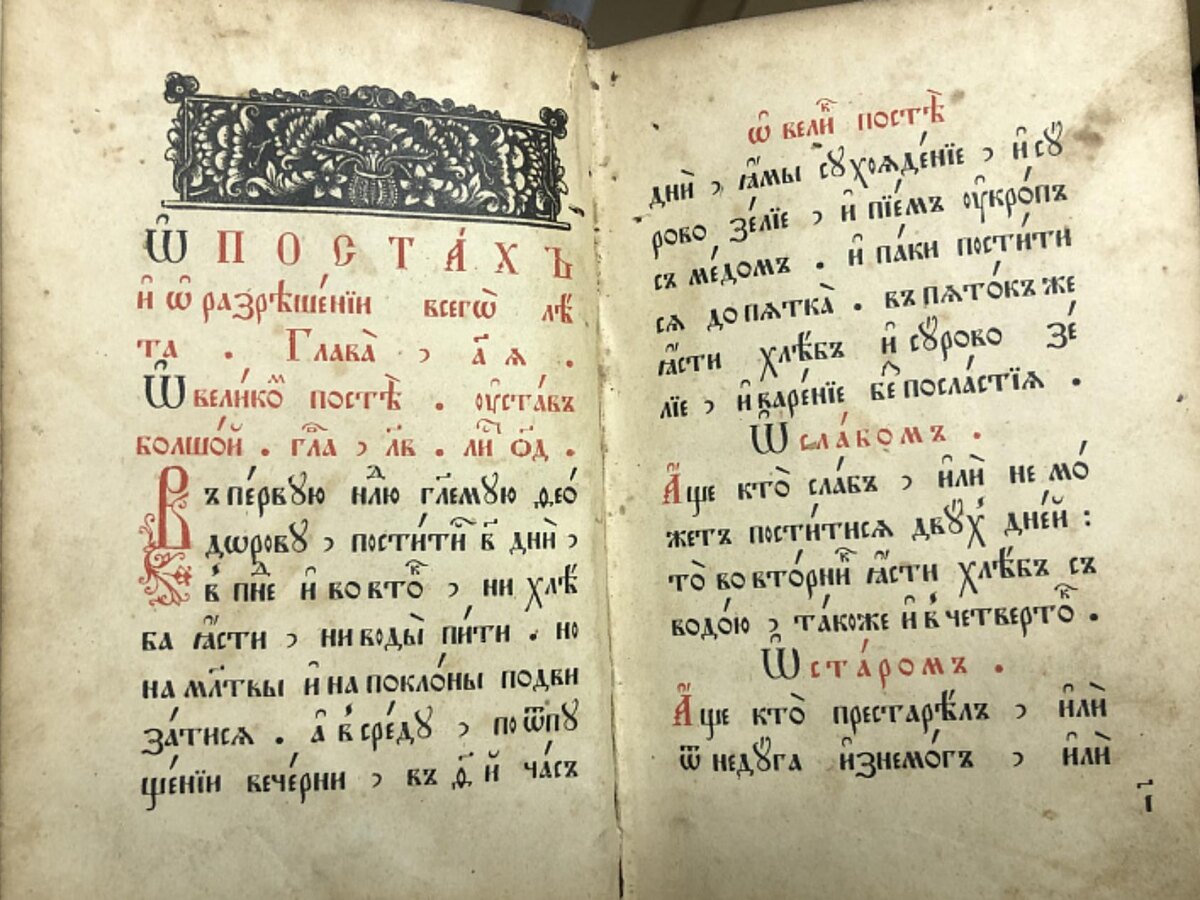 Ѡ҆ ПОСТА́ХЪ
и҆ ѡ҆ разрѣше́нїи всегѡ̀ лѣ́
та . Глава̀ , а҃ ѧ .
Ѡ҆ вели́коⷨ постѣ̀ . ᲂу҆ста́въ
болшо́й . гла҃ , лв҃ . лиⷭ҇ ѻ҃д .
Въ пе́рвꙋю нⷣлю гл҃емꙋю ѳ҆ео́
дѡровꙋ , пости́тиⷭ҇ в҃ дни̑ ,
в̾ пⷣне и҆ во втоⷦ҇ , ни хлѣ́
ба ꙗ҆́сти , ни воды̀ пи́ти . но
на мл҃твы и҆ на покло́ны подви
за́тисѧ . а҆ в̾ сре́дꙋ , по ѿпꙋ
ще́нїи вече́рни , въ ѳ҃ й ча́съ
ѡ҆ велиⷦ҇ постѣ̀
дни̑ , ꙗ҆́мы сꙋхоѧде́нїе , и҆ сꙋ
рово зе́лїе , и҆ пїе́мъ ᲂу҆кро́пъ
съ ме́домъ . и҆ па́ки пости́ти
сѧ до пѧтка̀ . въ пѧто́къ же
ꙗ҆́сти хлѣ́бъ и҆ сꙋ́рово зе́
лїе , и҆ варе́нїе беⷥ посла́стїѧ .
Ѡ҆ сла́бомъ .
А҆́ще кто̀ сла́бъ , и҆лѝ не мо́
жетъ пости́тисѧ двꙋ́хⸯ дне́й :
то̀ во вто́рниⷦ҇ ꙗ҆́сти хлѣ́бъ съ
водо́ю , та́коже и҆ в̾ четвертоⷦ҇ .
Ѡ҆ ста́ромъ .
А҆́ще кто̀ престарѣ́лъ , и҆лѝ
ѿ недꙋ́га и҆знемо́гъ , и҆лѝ
і҃